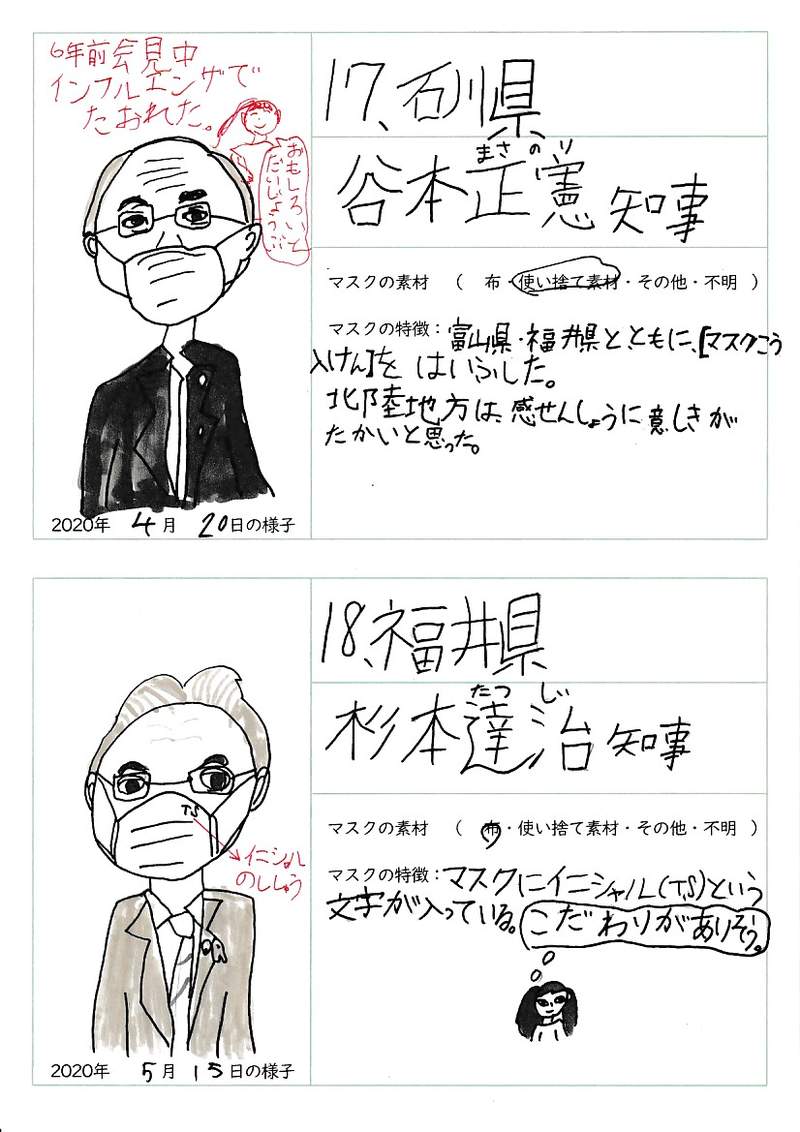 6年前会見中
インフルエンザで
たおれた。
おもしろいと
だいじょうぶ
17、石川県
まさのり
谷本正憲 知事
マスクの素材 ( 布・使い捨て素材・その他・不明 )
マスクの特徴：富山県・福井県とともに、[マスクこう
入けん]を はいふした。
北陸地方は、感せんしょうに意しきが
たかいと思った。
2020年 4月 20日の様子
18、福井県
たつじ
杉本達治 知事
マスクの素材 ( 布・使い捨て素材・その他・不明 )
TS
イニシャル
のししゅう
マスクの特徴：マスクにイニシャル(TS)という
文字が入っている。こだわりがありそう。
2020年 5月 15日の様子